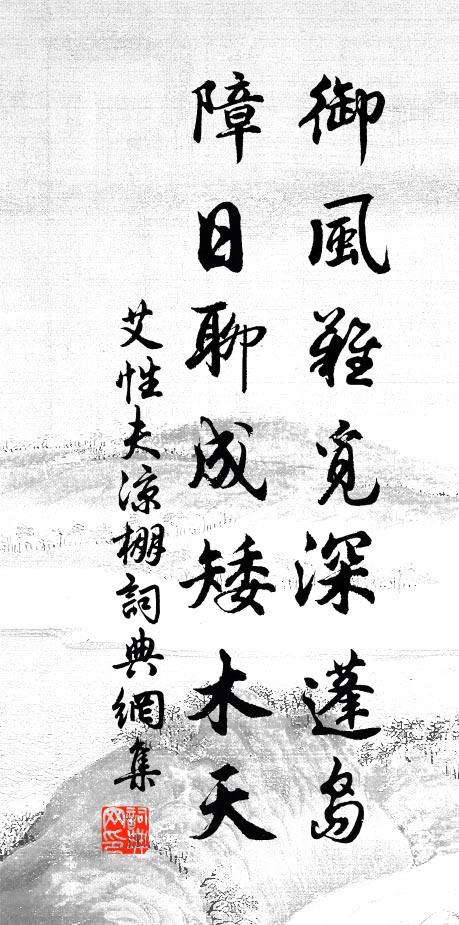 御風難覓深蓬島
障日聊成矮木天
艾性夫涼棚詞典網集